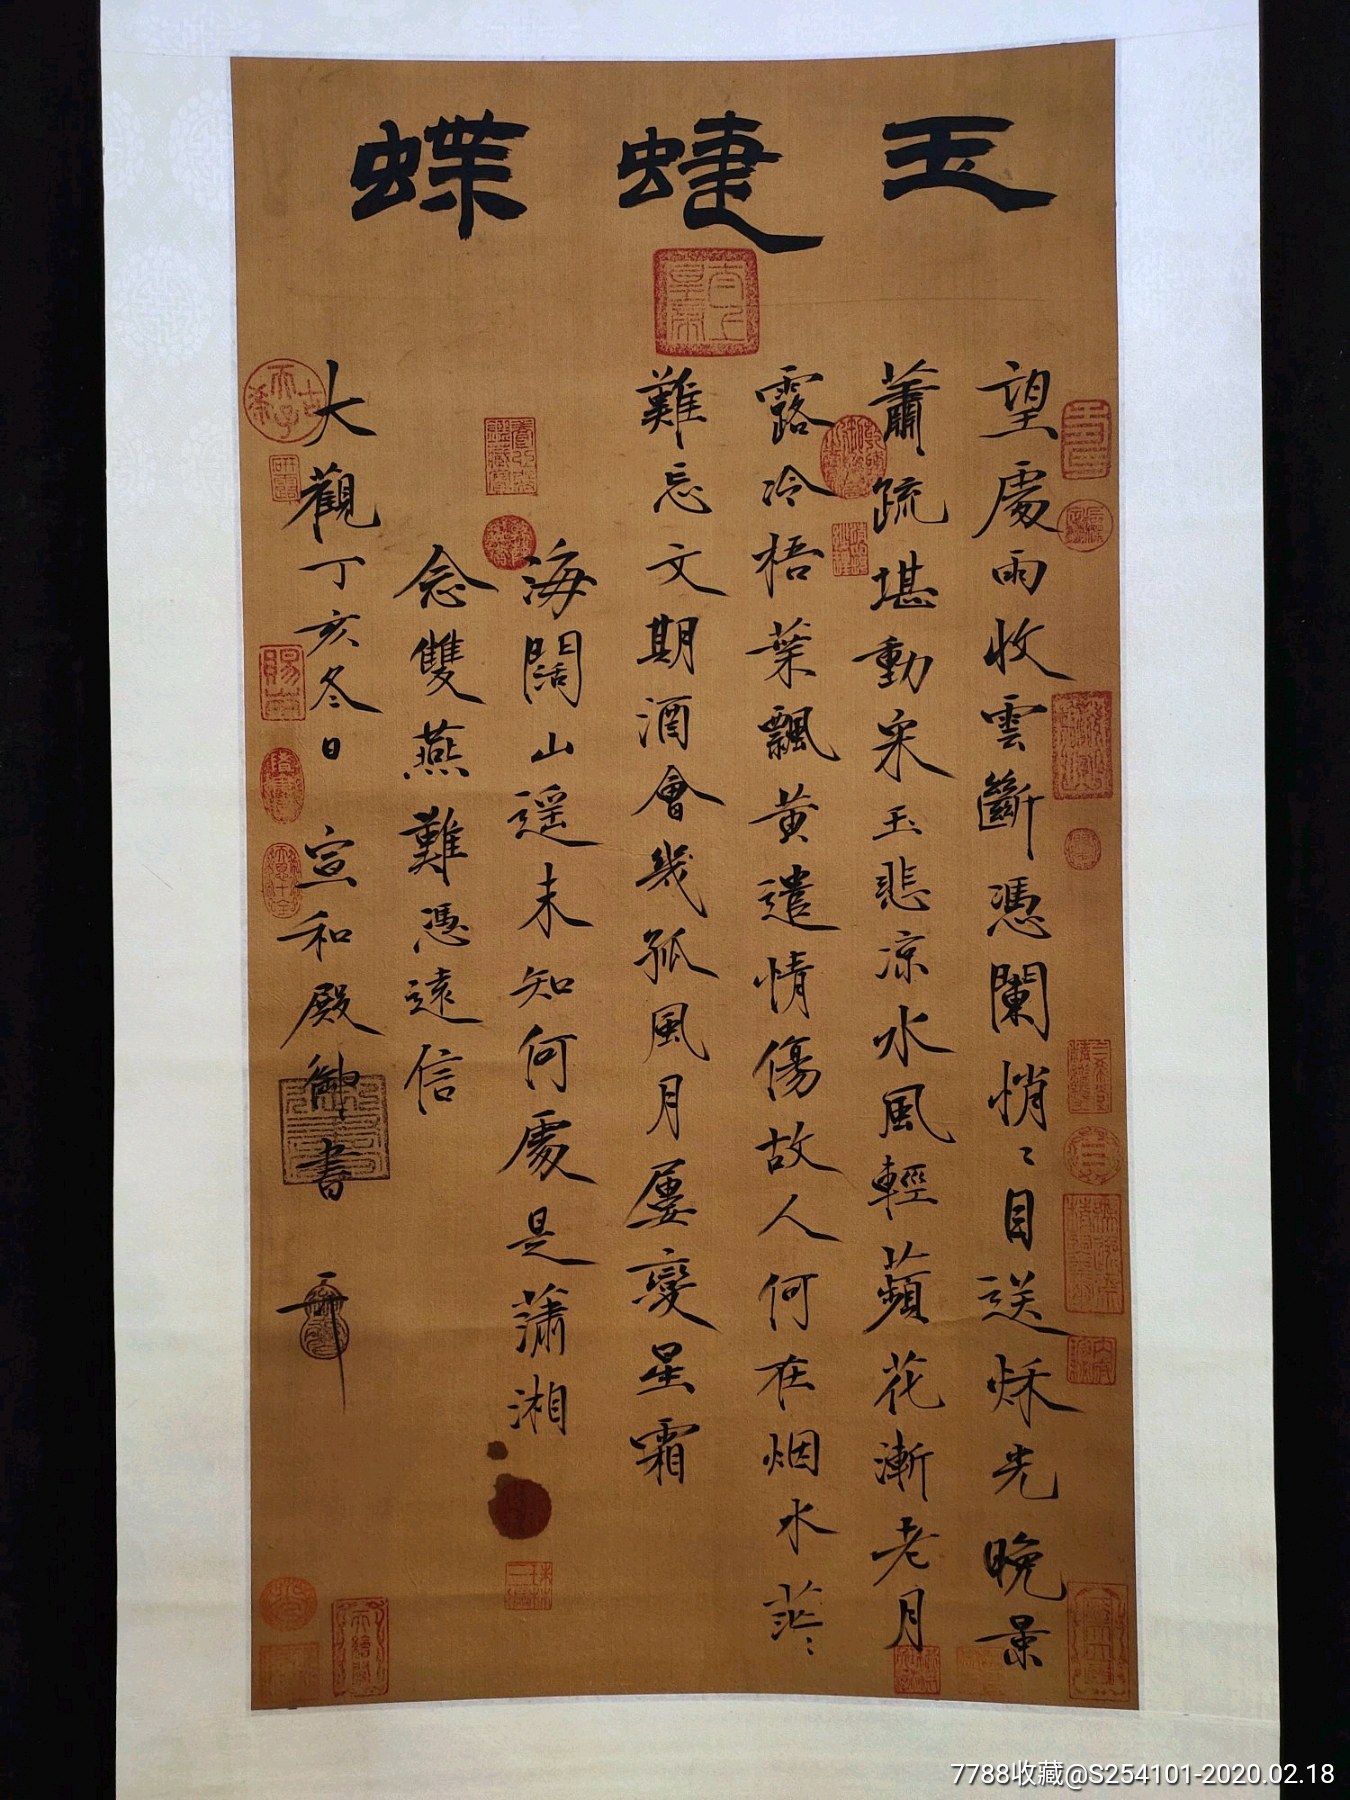 玉蜨蝶
望處雨收雲斷憑闌悄〻目送秌光晚景
蕭疏堪動宋玉悲凉水風輕蘋花漸老月
露冷梧葉飄黄遣情傷故人何在烟水茫〻
難忘文期酒會幾孤風月屢變星霜
海闊山遥未知何處是瀟湘
念雙燕難憑遠信
大觀丁亥冬日 宣和殿御書
7788收藏@S254101-2020.02.18